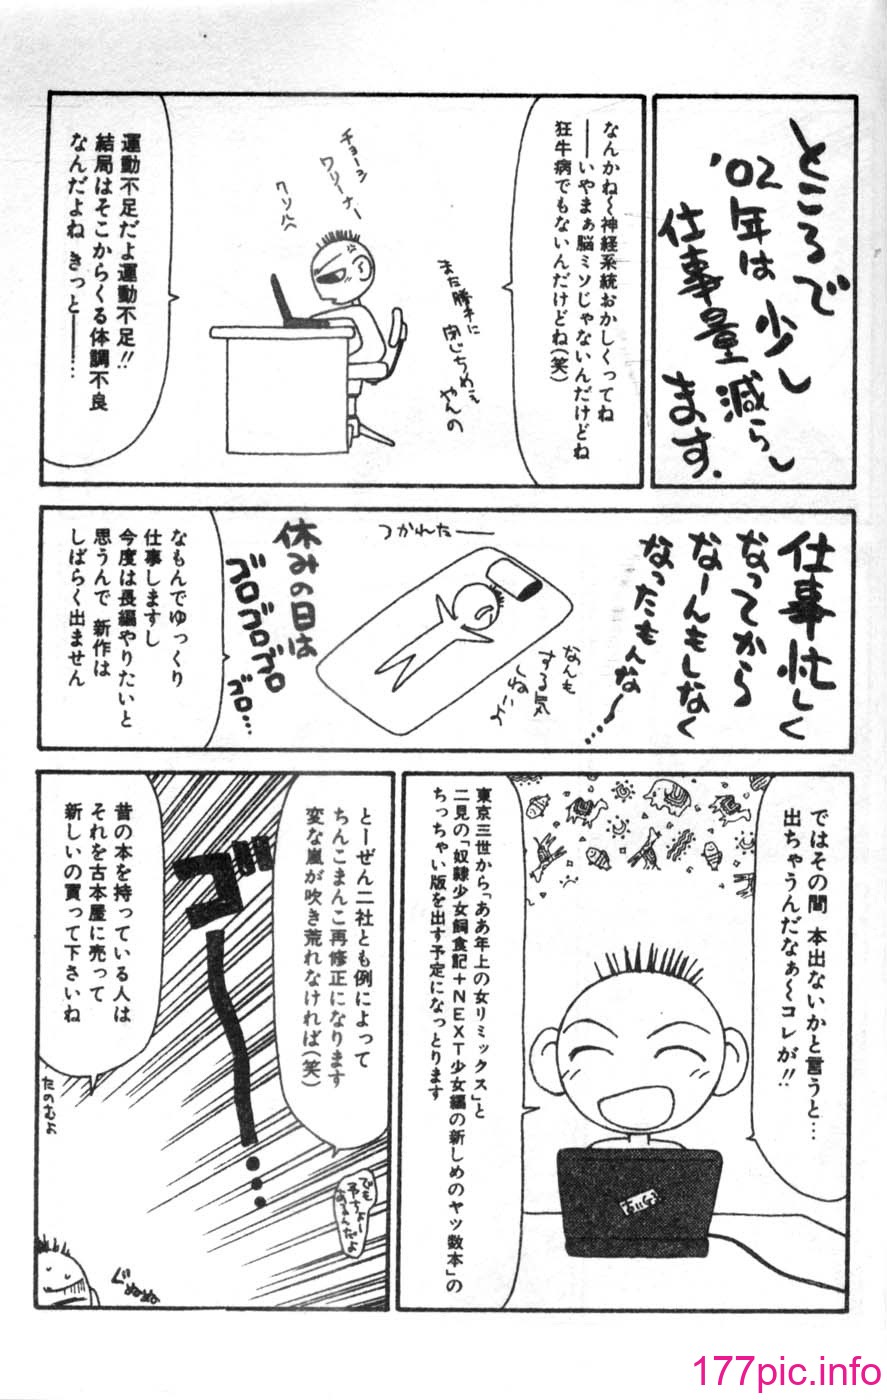 ところで
'02年は少し
仕事量減らし
ます.
なんかね～神経系統おかしくってね
――いやまぁ脳ミソじゃないんだけどね
狂牛病でもないんだけどね(笑)
チョーシ
ワリーナー
クソルヘ
また勝手に
閉じちめえ
やんの
運動不足だよ運動不足!!
結局はそこからくる体調不良
なんだよね きっと――…
仕事忙しく
なってから
なーんもしなく
なったもんな～…
つかれたー
なんも
する気
しねーよ
休みの日は
ゴロゴロゴロ
ゴロ…
なもんでゆっくり
仕事しますし
今度は長編やりたいと
思うんで 新作は
しばらく出ません
ではその間 本出ないかと言うと…
出ちゃうんだなぁ～コレが!!
東京三世から「ああ年上の女リミックス」と
二見の「奴隷少女飼食記+NEXT少女編の新しめのヤツ数本」の
ちっちゃい版を出す予定になっとります
とーぜん二社とも例によって
ちんこまんこ再修正になります
変な嵐が吹き荒れなければ(笑)
ゴー…
でも
予ちょー
あるんだよ
昔の本を持っている人は
それを古本屋に売って
新しいの買って下さいね
たのむよ
ぐぬぬぬ
177pic.info